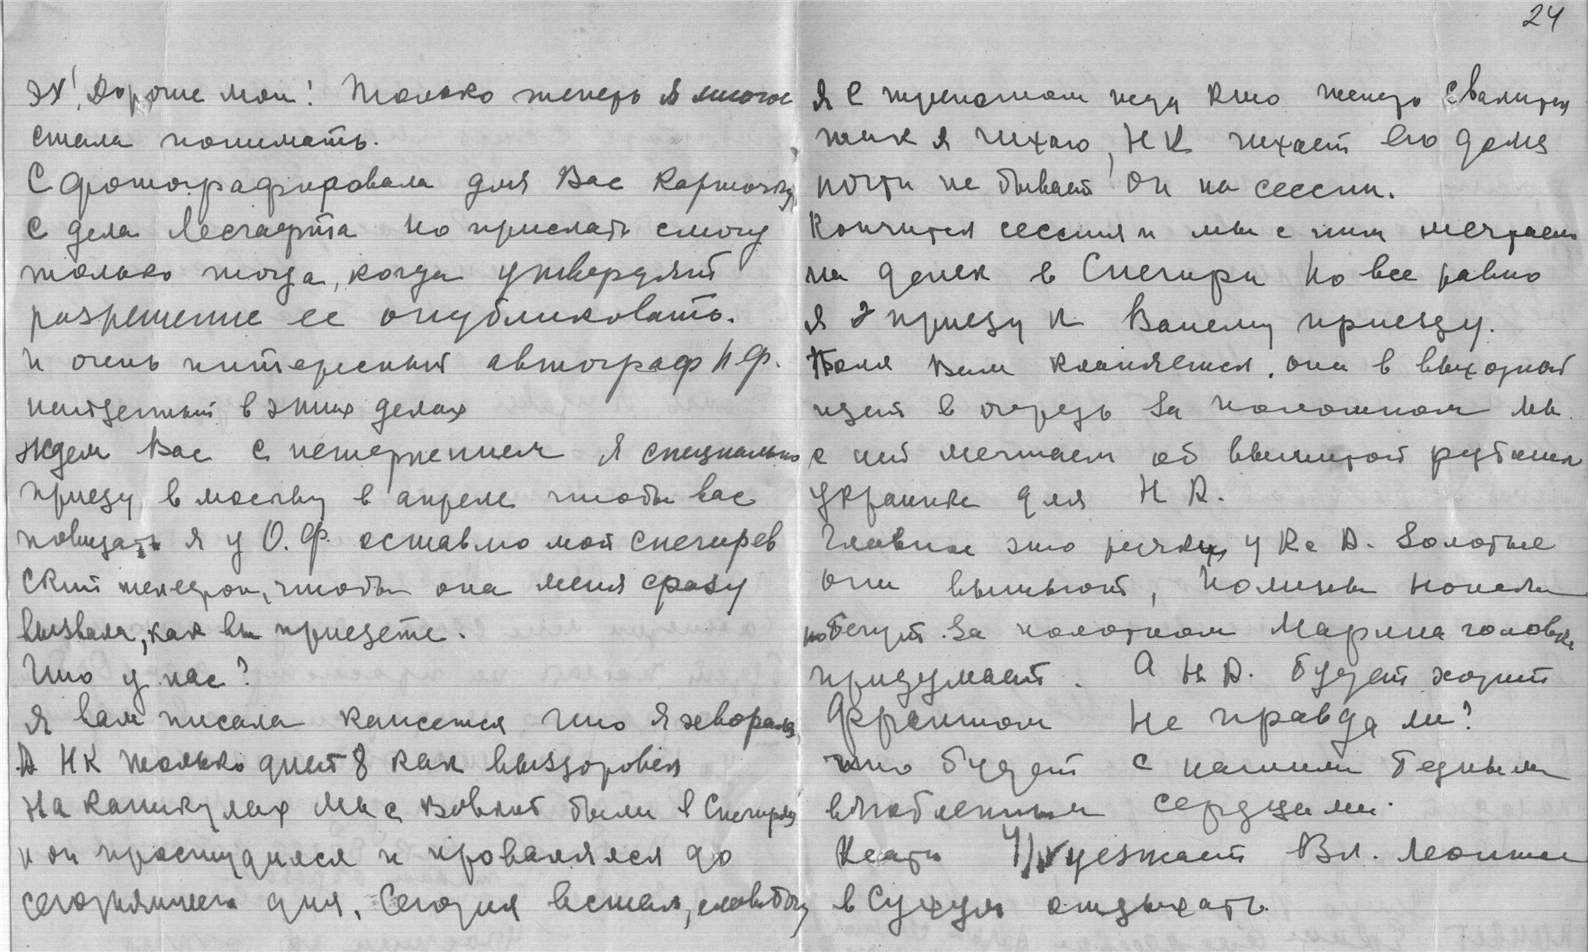 24
Эх! Дорогие мои! Только теперь я многое
стала понимать.
Сфотографировала для Вас карточку
с дела Лесгафта но прислать смогу
только тогда, когда утвердят
разрешение ее опубликовать.
и очень интересный автограф П.Ф.
найденный в этих делах
Ждем Вас с нетерпением Я специально
приеду в москву в апреле чтобы вас
повидать я у О.Ф. оставлю мой снегирев
ский телефон, чтобы она меня сразу
вызвала, как вы приедете.
Что у нас?
Я вам писала кажется что я хворала
А НК только дней 8 как выздоровел
На каникулах мы с Вовкой были в Снегирях
и он простудился и провалялся до
сегодняшнего дня. Сегодня встал, слава богу
Я с трепетом жду кто теперь свалится
так я чихаю, НК чихает его дома
почти не бывает он на сессии.
Кончится сессия и мы с ним мечтаем
на денек в Снегири Но все равно
я приеду к Вашему приезду.
Поля Вам кланяется. она в выходной
идет в очередь за полотном мы
с ней мечтаем об вышитой рубашке
украинке для Н А.
Главное это ручки у К А. Золотые
они вышьют, Полины
побегут за полотном Марина головка
придумает. А Н А. будет ходить
Франтом Не правда ли?
что будет с нашими бедными
влюбленными сердцами.
Кстати уезжает Вл. Леонт
в Сухум отдыхать